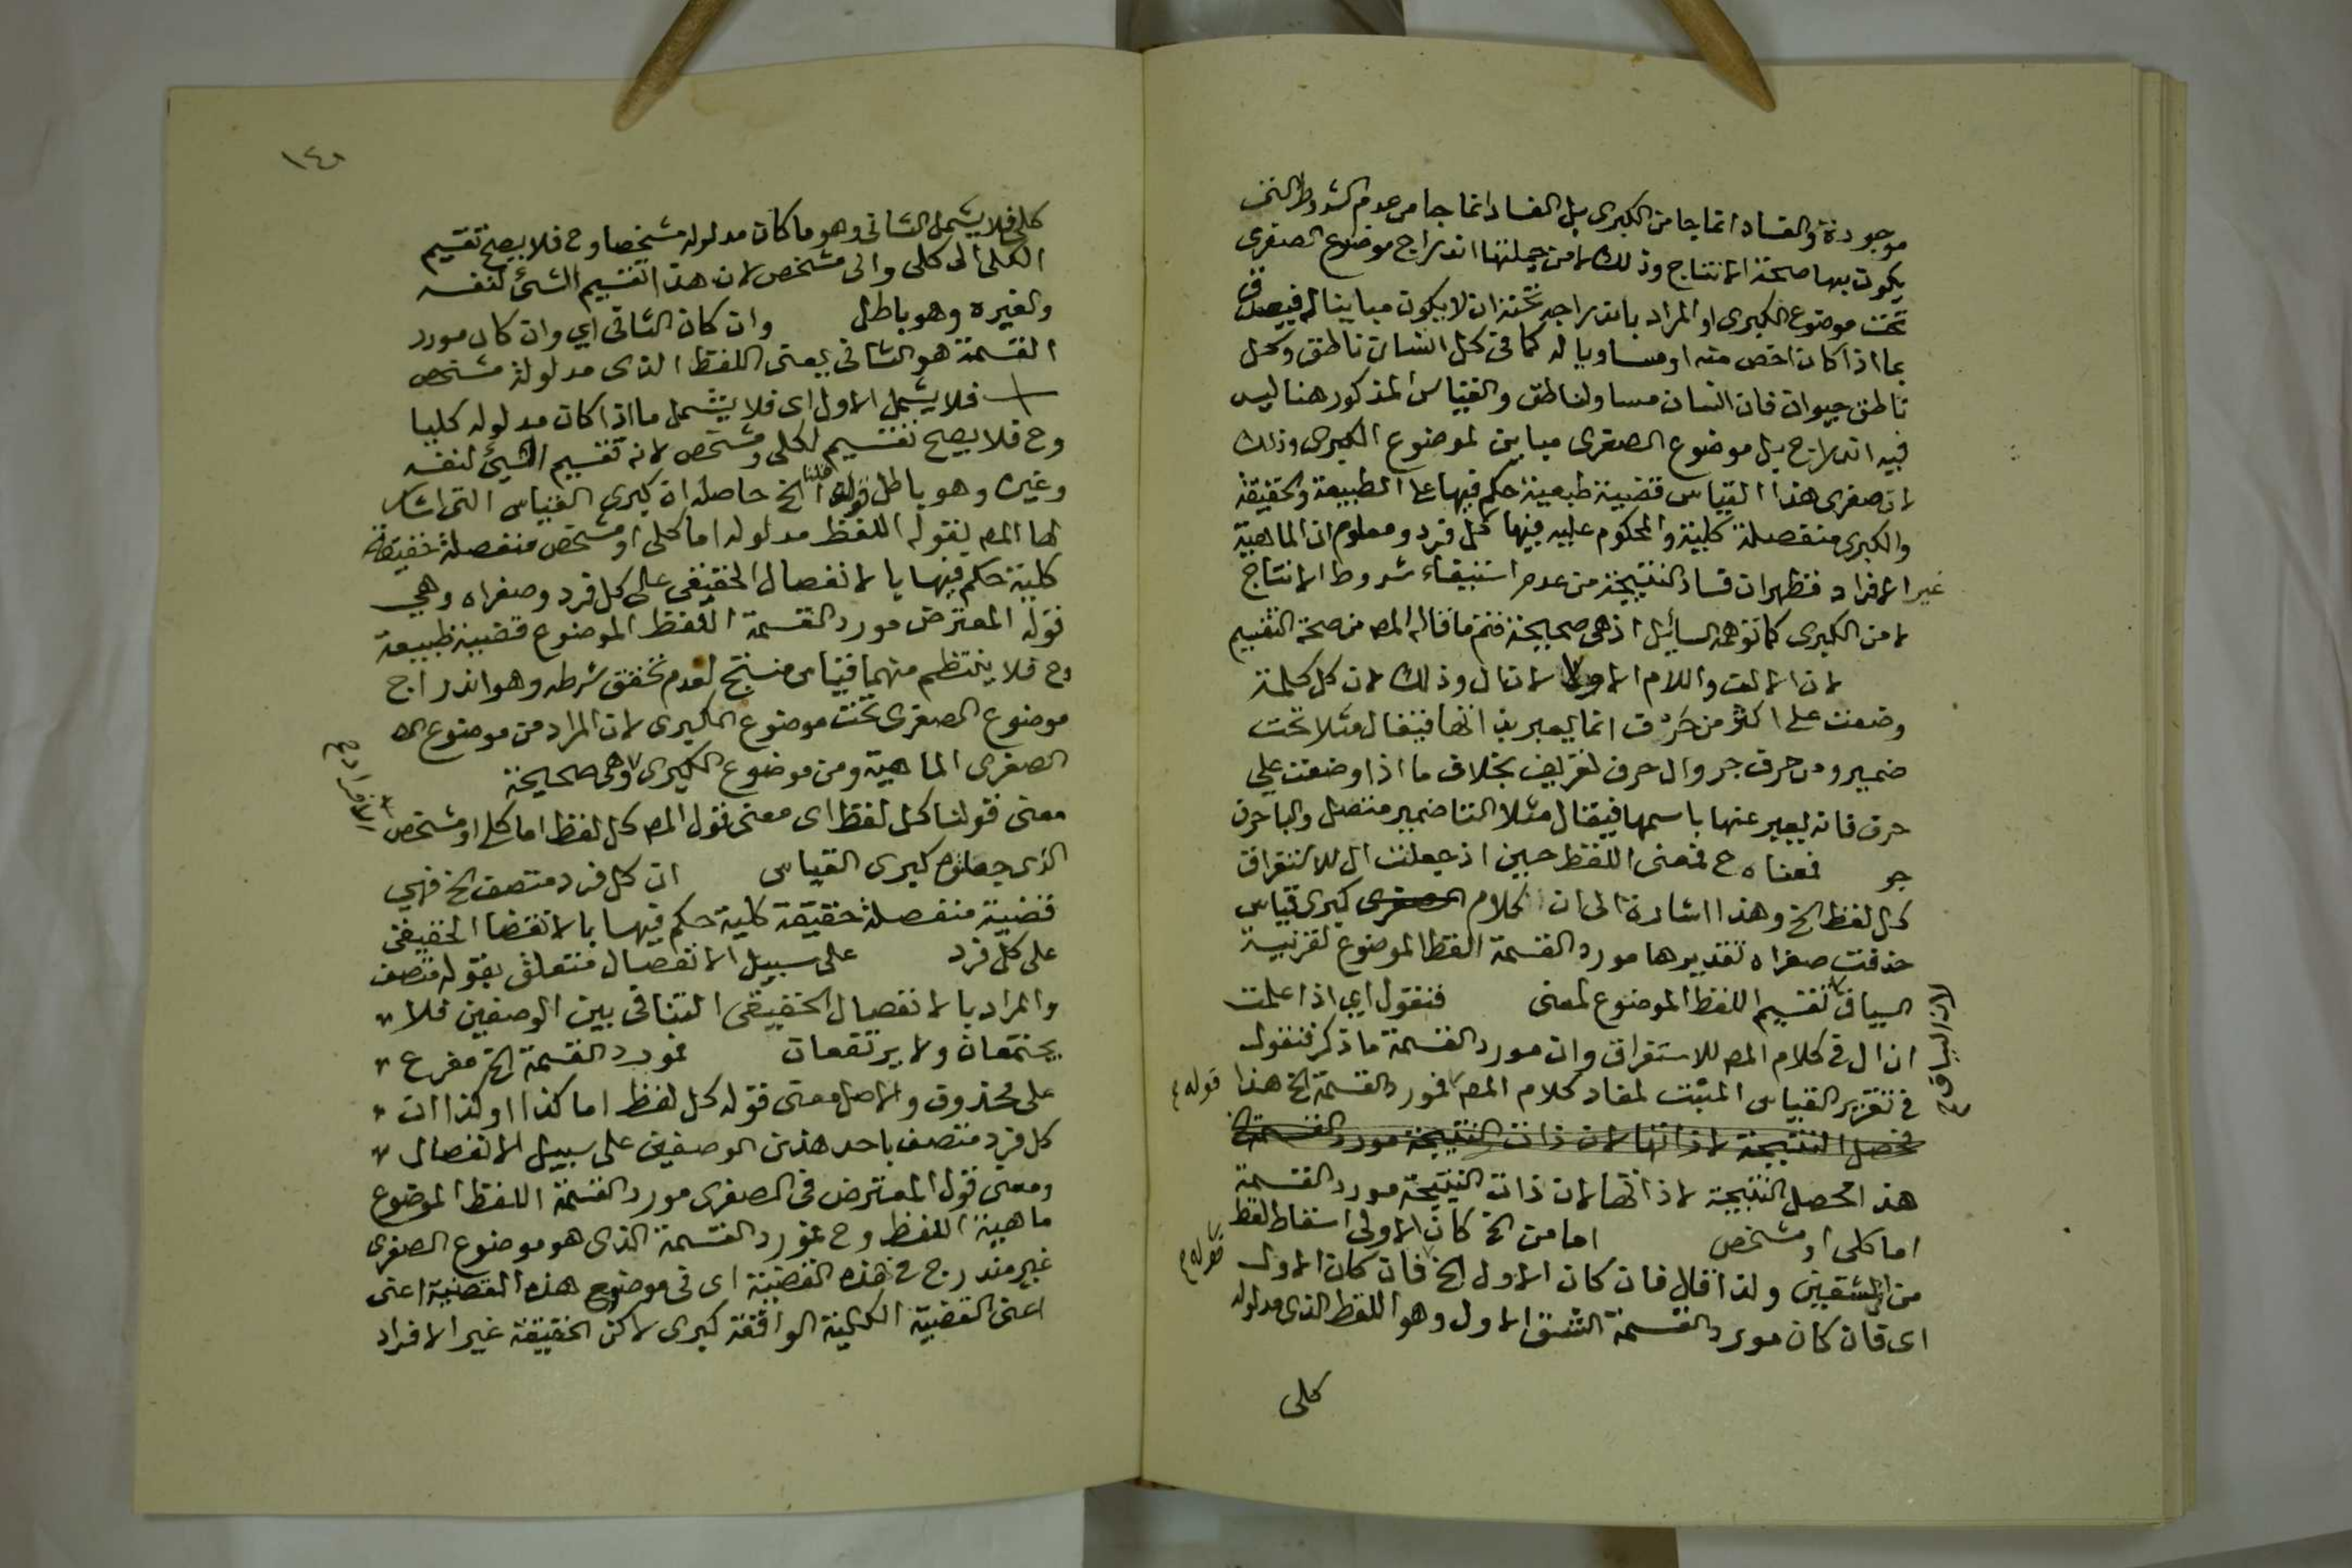 موجودة والفساد انما جا من الكبرى بل الفساد انما جا من عدم الشروط التى
يكون بها صحة الانتاج وذلك لان من جملتها اندراج موضوع الصغرى
تحت موضوع الكبرى او المراد باندراجه تحته ان لا يكون مباينا له فيصدق
بما اذا كان اخص منه او مساويا له كما فى كل انسان ناطق وكل
ناطق حيوان فان انسان مساو لناطق والقياس المذكور هنا ليس
فيه اندراج بل موضوع الصغرى مباين لموضوع الكبرى وذلك
لان صغرى هذا القياس قضية طبيعية حكم فيها على الطبيعة والحقيقة
والكبرى منفصلة كلية والمحكوم عليه فيها كل فرد ومعلوم ان الماهية
غير الافراد فظهر ان فساد النتيجة من عدم استيفاء شروط الانتاج
لا من الكبرى كما توهمه السائل اذ هى صحيحة فتم ما قاله المص من صحة التقسيم
لان الالف واللام الاولى لان ال وذلك لان كل كلمة
وضعت على اكثر من حرف انما يعبر بذاتها فيقال مثلا نحت
ضمير ومن حرف جر وال حرف تعريف بخلاف ما اذا وضعت على
حرف فانه يعبر عنها باسمها فيقال مثلا التا ضمير متصل والبا حرف
جر فمعناه ح فمعنى اللفظ حين اذ جعلت ال للاستغراق
كل لفظ الخ وهذا اشارة الى ان الكلام الصغرى كبرى قياس
حذفت صغراه تقديرها مورد القسمة اللفظ الموضوع لقرينة
السياق تقسيم اللفظ الموضوع لمعنى فنقول اي اذا علمت
لان السياق فى
ان ال فى كلام المص للاستغراق وان مورد القسمة ما ذكر فنقول
فى تقرير القياس المثبت لمفاد كلام المص فمورد القسمة الخ هذا
قوله
محصل النتيجة لا ذاتها لان ذات النتيجة مورد القسمة
هذا محصل النتيجة لا ذاتها لان ذات النتيجة مورد القسمة
اما كلى او مشخص اما من الخ كان الاولى اسقاط لفظ
من الشقين ولذا قال فان كان الاول الخ فان كان الاول
قوله
اى فان كان مورد القسمة الشق الاول وهو اللفظ الذى مدلوله
كلى
١٤٨
كلى فلا يشمل الثانى وهو ما كان مدلوله مشخصا وح فلا يصح تقسيم
الكلى الى كلى والى مشخص لان هذا تقسيم الشئ لنفسه
ولغيره وهو باطل وان كان الثانى اي وان كان مورد
القسمة هو الثانى يعنى اللفظ الذى مدلوله مشخص
فلا يشمل الاول اى فلا يشمل ما اذا كان مدلوله كليا
وح فلا يصح تقسيم لكلى ومشخص لانه تقسيم الشئ لنفسه
وغيره وهو باطل قوله قلنا الخ حاصله ان كبرى القياس التى اشار
لها المص بقوله اللفظ مدلوله اما كلى او مشخص منفصلة حقيقة
كلية حكم فيها بالانفصال الحقيقى على كل فرد وصغراه وهي
قوله المعترض مورد القسمة اللفظ الموضوع قضية طبيعة
وح فلا ينتظم منهما قياس منتج لعدم تحقق شرطه وهو اندراج
موضوع الصغرى تحت موضوع الكبرى لان المراد من موضوع
الصغرى الماهية ومن موضوع الكبرى وهى صحيحة
الافراد صح
معنى قولنا كل لفظ اى معنى قول المص كل لفظ اما كلى او مشخص
الذى جعلتوه كبرى القياس ان كل فرد متصف الخ فهي
قضية منفصلة حقيقة كلية حكم فيها بالانفصال الحقيقى
على كل فرد على سبيل الانفصال متعلق بقوله متصف
والمراد بالانفصال الحقيقى التنافى بين الوصفين فلا
يجتمعان ولا يرتفعان فمورد القسمة الخ مفرع
على محذوف والاصل معنى قوله كل لفظ اما كذا او كذا ان
كل فرد متصف باحد هذين الوصفين على سبيل الانفصال
ومعنى قول المعترض فى الصغرى مورد القسمة اللفظ الموضوع
ماهية اللفظ وح فمورد القسمة الذى هو موضوع الصغرى
غير مندرج فى هذه القضية اى فى موضوع هذه القضية اعنى
اعنى القضية الكلية الواقعة كبرى لان الحقيقة غير الافراد